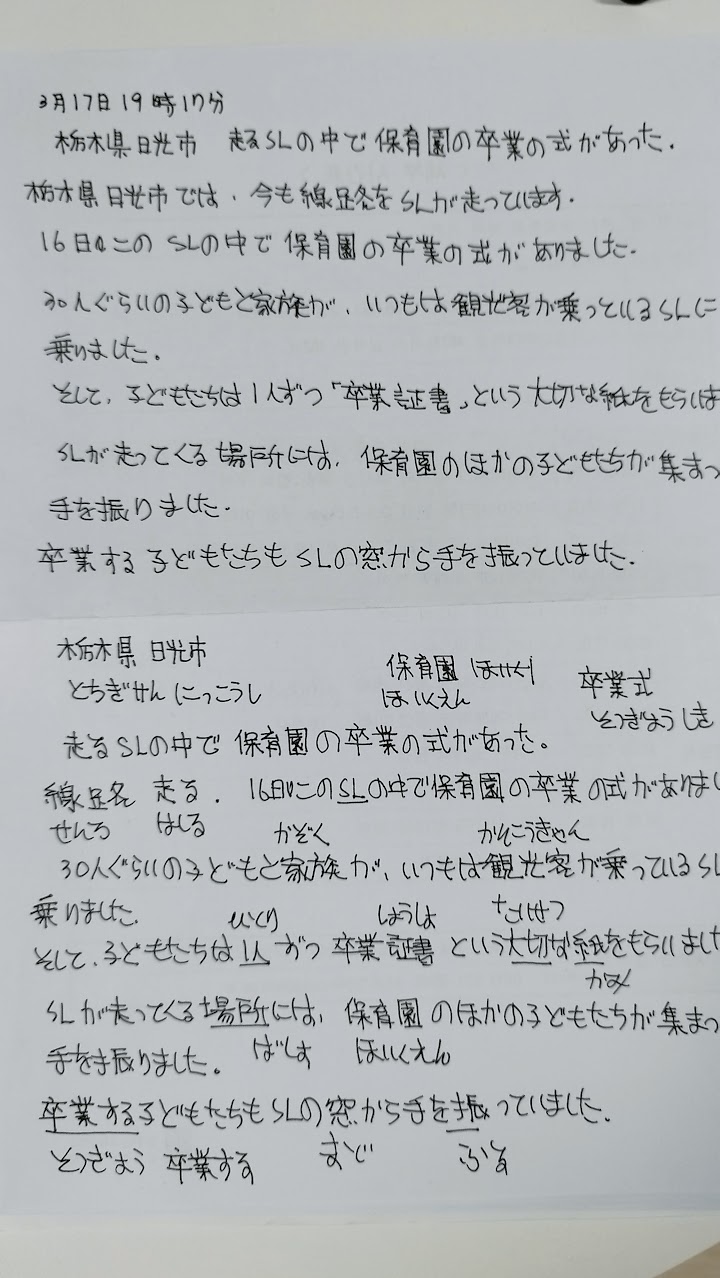 3月17日19時17分
栃木県日光市 走るSLの中で保育園の卒業の式があった.
栃木県日光市では、今も線路をSLが走っています.
16日、このSLの中で保育園の卒業の式がありました.
30人ぐらいの子どもと家族が、いつもは観光客が乗っているSLに
乗りました.
そして、子どもたちは1人ずつ「卒業証書」という大切な紙をもらいま
SLが走ってくる場所には、保育園のほかの子どもたちが集まっ
手を振りました.
卒業する子どもたちもSLの窓から手を振っていました.
栃木県 日光市 保育園 ほいく 卒業式
とちぎけん にっこうし ほいくえん そつぎょうしき
走るSLの中で保育園の卒業の式があった。
線路 走る. 16日、このSLの中で保育園の卒業の式がありまし
せんろ はしる かぞく かんこうきゃく
30人ぐらいの子どもと家族が、いつもは観光客が乗っているSL
乗りました. ひとり しょうしょ たいせつ
そして、子どもたちは1人ずつ 卒業証書 という大切な紙をもらいました
かみ
SLが走ってくる場所には、保育園のほかの子どもたちが集まっ
手を振りました。 ばしょ ほいくえん
卒業する子どもたちもSLの窓から手を振っていました.
そつぎょう 卒業する まど ふる